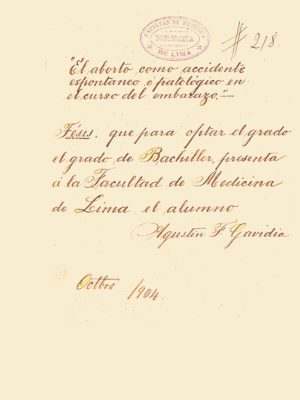 FACULTAD DE MEDICINA
BIBLIOTECA
DE LIMA
# 218.
"El aborto como accidente
espontaneo ó patológico en
el curso del embarazo."—
Tésis que para optar el grado
el grado de Bachiller, presenta
á la Facultad de Medicina
de Lima el alumno
Agustin F Gavidia
Octbre 1904.